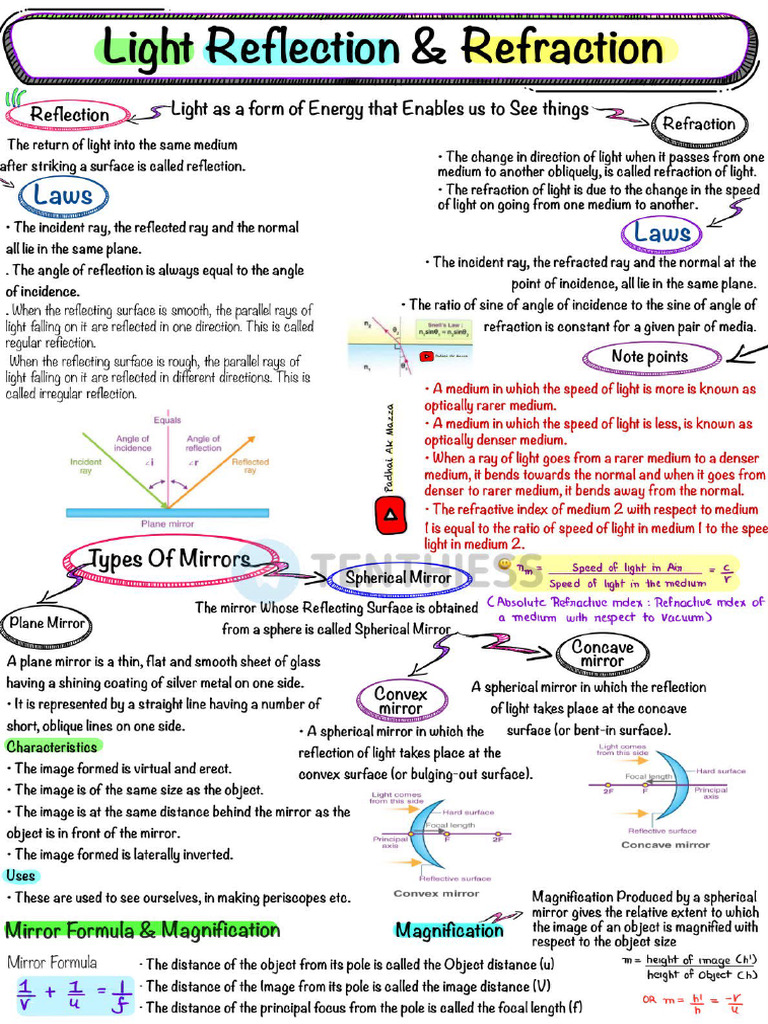 Light Reflection & Refraction
Light as a form of Energy that Enables us to See things
Reflection
The return of light into the same medium
after striking a surface is called reflection.
Laws
• The incident ray, the reflected ray and the normal
all lie in the same plane.
. The angle of reflection is always equal to the angle
of incidence.
. When the reflecting surface is smooth, the parallel rays of
light falling on it are reflected in one direction. This is called
regular reflection.
When the reflecting surface is rough, the parallel rays of
light falling on it are reflected in different directions. This is
called irregular reflection.
Equals
Angle of
incidence
∠i
Angle of
reflection
∠r
Incident
ray
Reflected
ray
Plane mirror
Refraction
• The change in direction of light when it passes from one
medium to another obliquely, is called refraction of light.
• The refraction of light is due to the change in the speed
of light on going from one medium to another.
Laws
• The incident ray, the refracted ray and the normal at the
point of incidence, all lie in the same plane.
• The ratio of sine of angle of incidence to the sine of angle of
refraction is constant for a given pair of media.
n₂
θ₂
n₁
Snell's Law :
n₁sinθ₁ = n₂sinθ₂
Padhai Ak Mazza
Note points
• A medium in which the speed of light is more is known as
optically rarer medium.
• A medium in which the speed of light is less, is known as
optically denser medium.
• When a ray of light goes from a rarer medium to a denser
medium, it bends towards the normal and when it goes from
denser to rarer medium, it bends away from the normal.
• The refractive index of medium 2 with respect to medium
1 is equal to the ratio of speed of light in medium 1 to the spee
light in medium 2.
Padhai Ak Mazza
nm = Speed of light in Air / Speed of light in the medium = c/v
(Absolute Refractive index : Refractive index of
a medium with respect to vacuum)
TENTHIESS
Types Of Mirrors
Spherical Mirror
The mirror Whose Reflecting Surface is obtained
from a sphere is called Spherical Mirror
Plane Mirror
A plane mirror is a thin, flat and smooth sheet of glass
having a shining coating of silver metal on one side.
• It is represented by a straight line having a number of
short, oblique lines on one side.
Characteristics
• The image formed is virtual and erect.
• The image is of the same size as the object.
• The image is at the same distance behind the mirror as the
object is in front of the mirror.
• The image formed is laterally inverted.
Uses
• These are used to see ourselves, in making periscopes etc.
Convex
mirror
• A spherical mirror in which the
reflection of light takes place at the
convex surface (or bulging-out surface).
Light comes
from this side
Hard surface
Focal length
Principal
axis
F
2F
Reflective surface
Convex mirror
Concave
mirror
A spherical mirror in which the reflection
of light takes place at the concave
surface (or bent-in surface).
Light comes
from this side
Hard surface
Focal length
2F
F
Principal
axis
Reflective surface
Concave mirror
Mirror Formula & Magnification
Mirror Formula
1/v + 1/u = 1/f
• The distance of the object from its pole is called the Object distance (u)
• The distance of the Image from its pole is called the image distance (V)
• The distance of the principal focus from the pole is called the focal length (f)
Magnification
Magnification Produced by a spherical
mirror gives the relative extent to which
the image of an object is magnified with
respect to the object size
m = height of image (h') / height of Object (h)
OR m = h'/h = -v/u